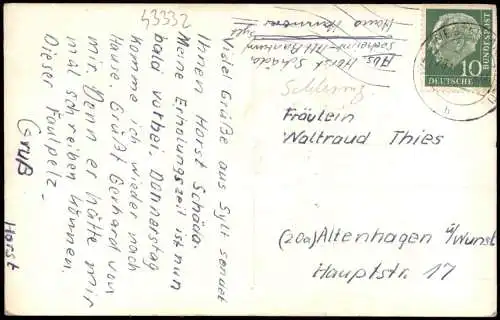 43332
Viele Grüße aus Sylt sendet
Ihnen Horst Schäda.
Meine Erholungszeit ist nun
balai vorbei. Donnerstag
komme ich wieder nach
Hause. Grüßt Gerhard von
mir. Denn er hätte mir
mal schreiben können.
Dieser Faulpelz.
Gruß
Horst
Abs. Horst Schäda
Haus Hannover
Sylt
DEUTSCHE
BUNDESPOST
10
Fräulein
Waltraud Thies
(20a) Altenhagen ü/Wunst
Hauptstr. 17